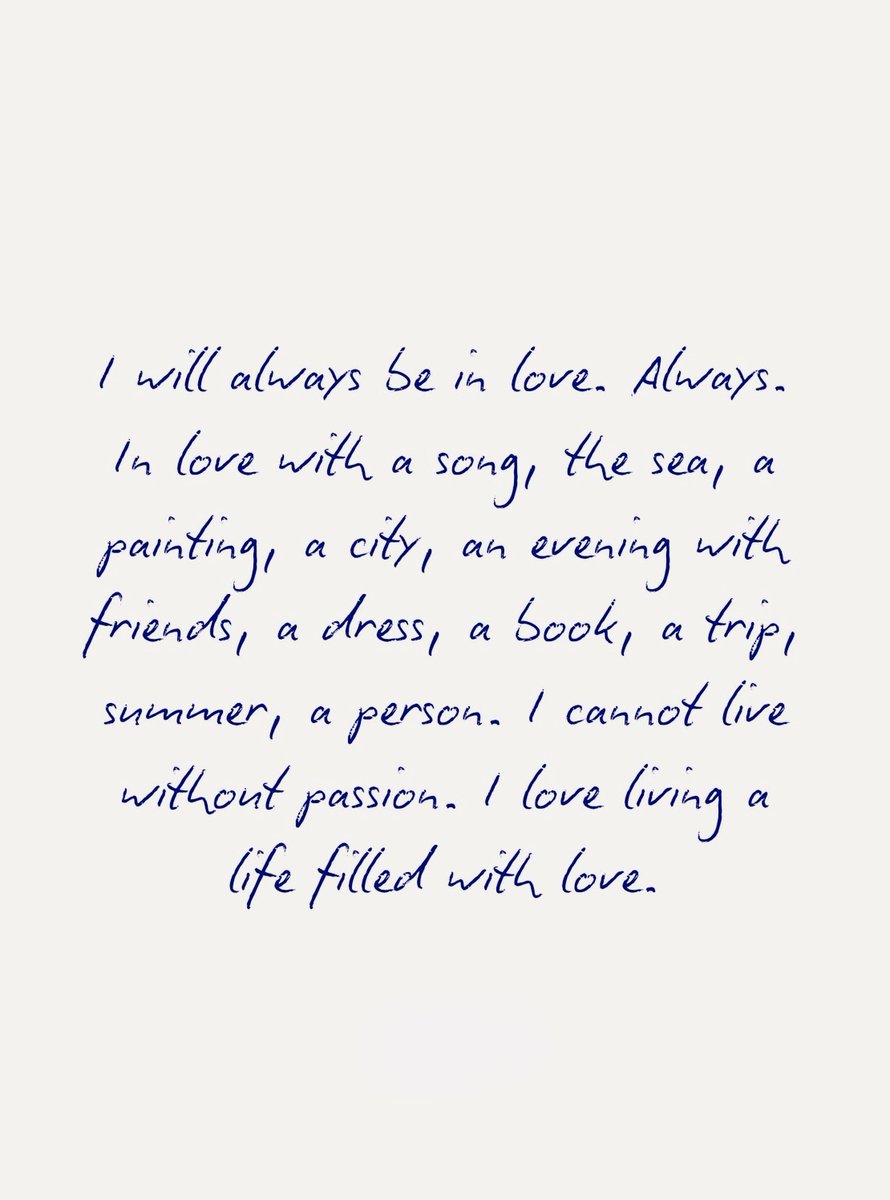 I will always be in love. Always.
In love with a song, the sea, a
painting, a city, an evening with
friends, a dress, a book, a trip,
summer, a person. I cannot live
without passion. I love living a
life filled with love.